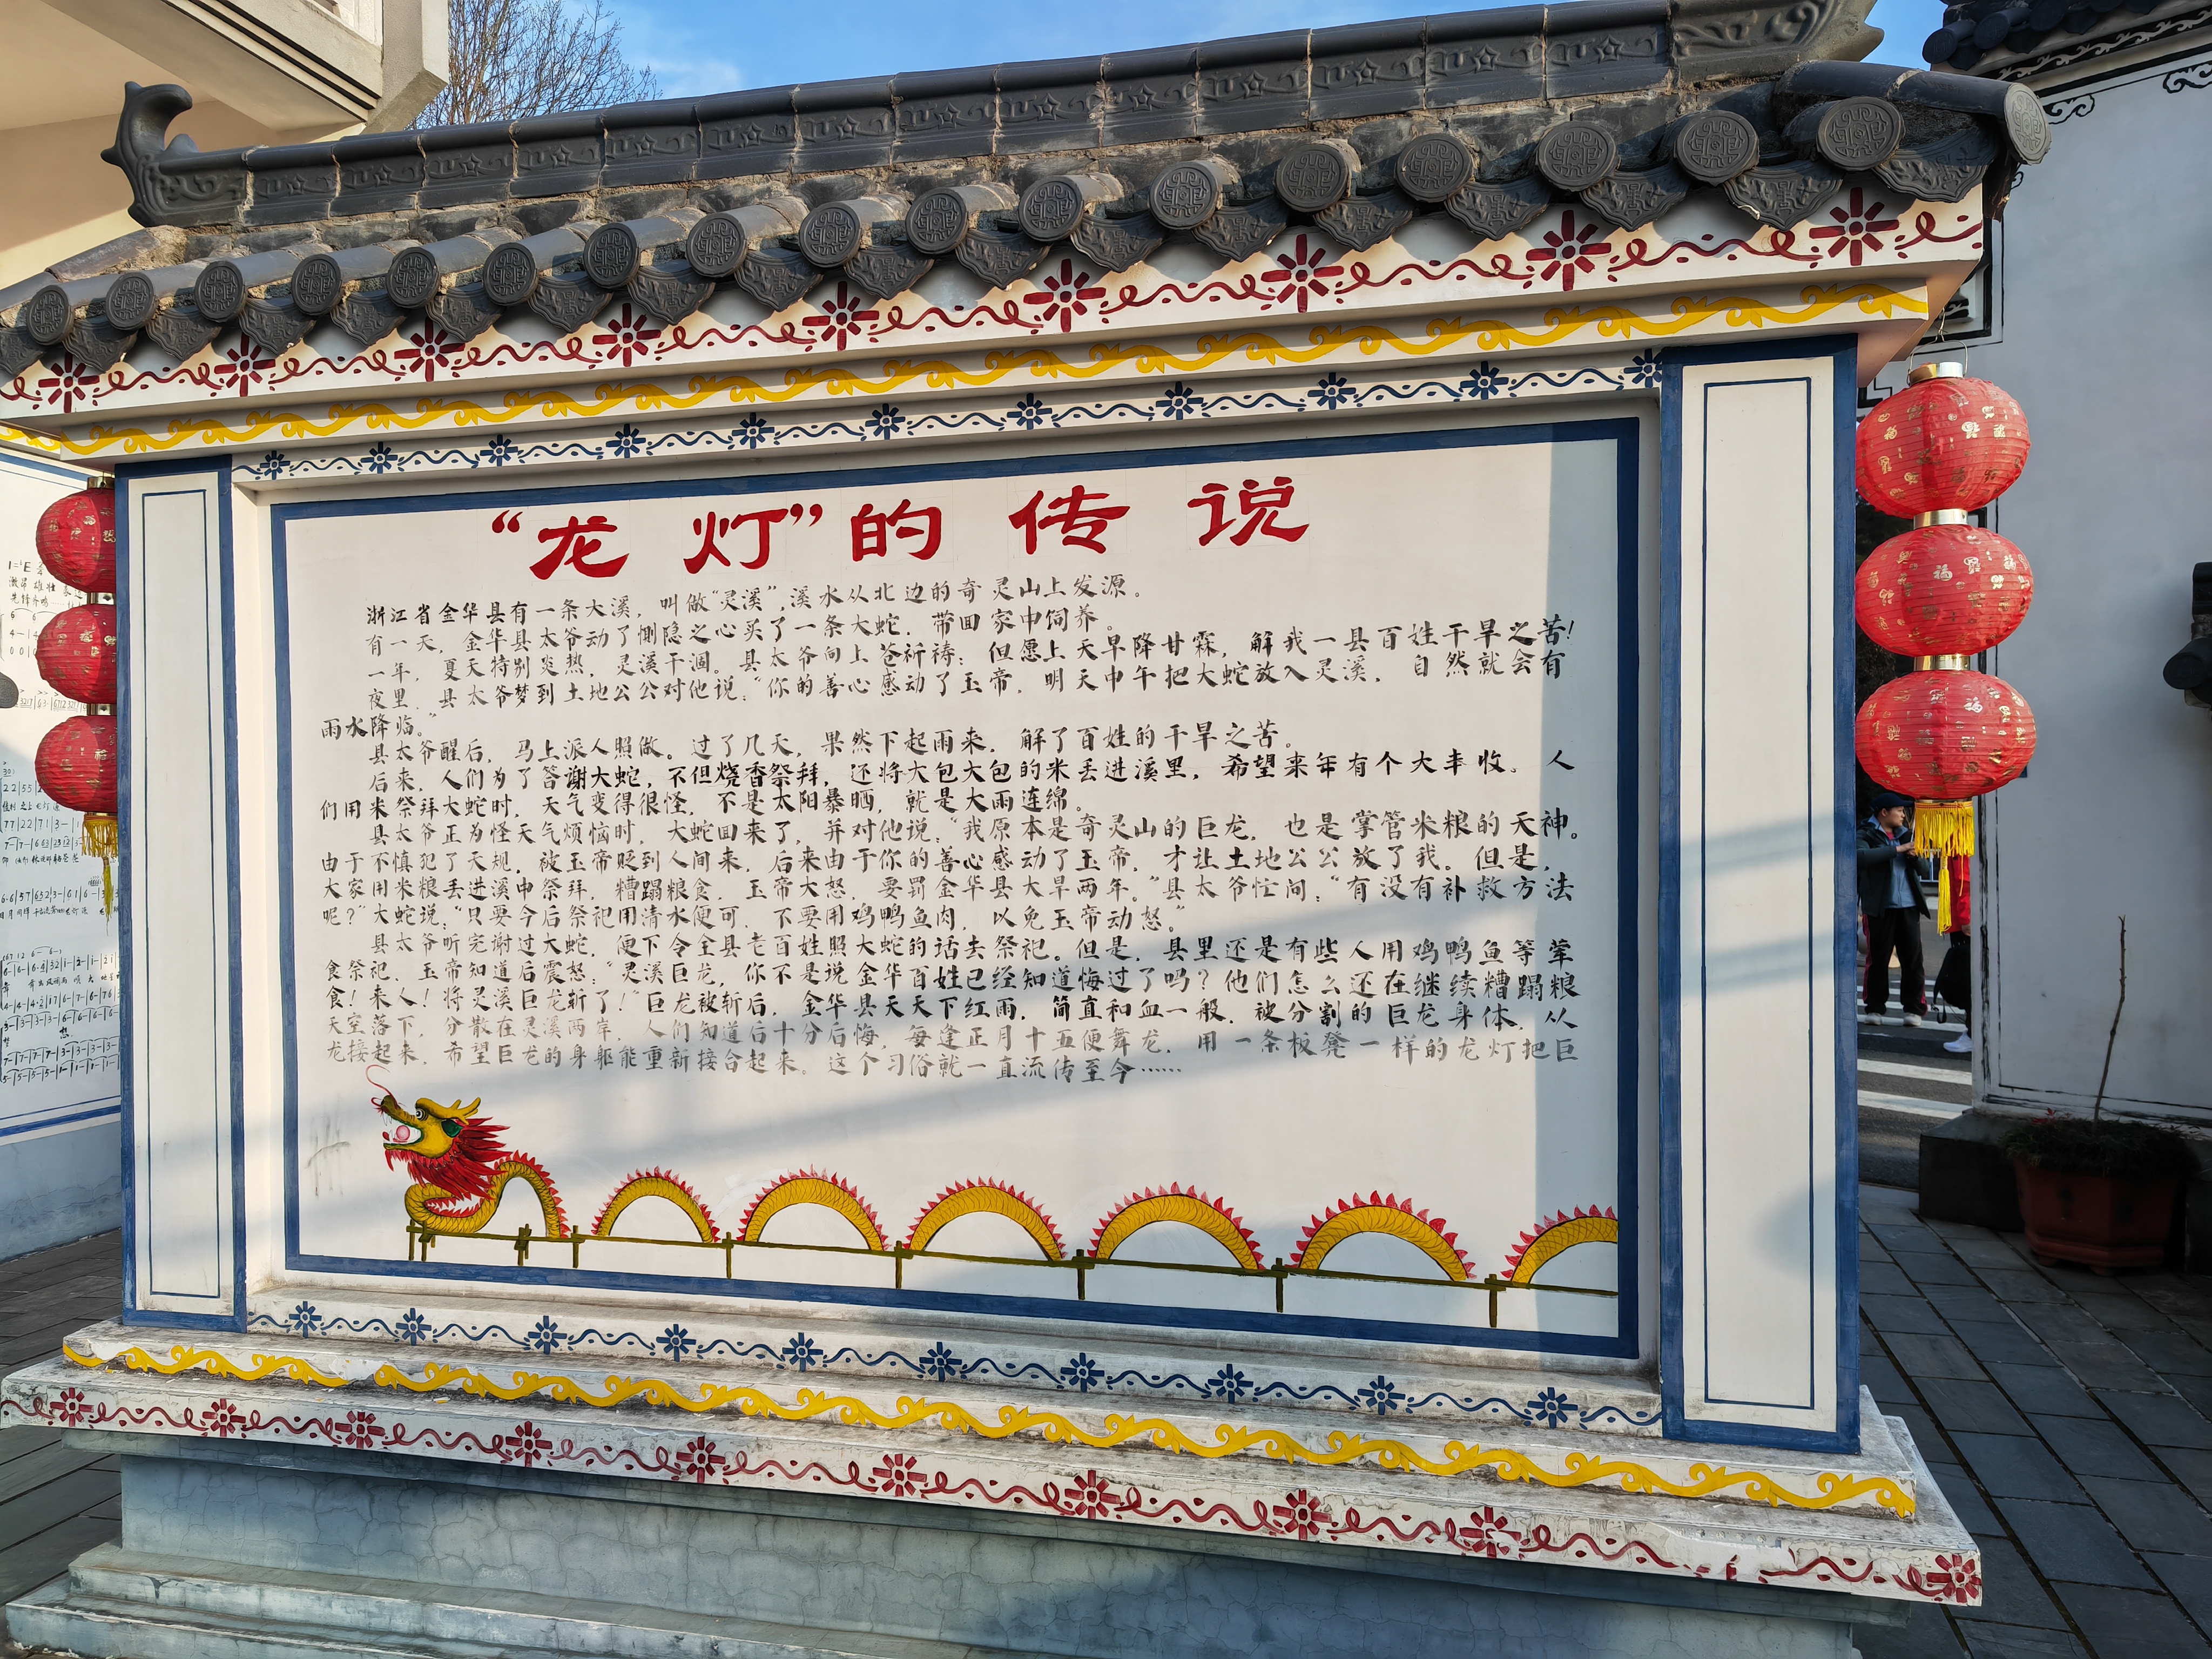 “龙灯”的传说
浙江省金华县有一条大溪，叫做“灵溪”，溪水从北边的奇灵山上发源。
有一天，金华县太爷动了恻隐之心买了一条大蛇，带回家中饲养。
一年，夏天特别炎热，灵溪干涸。县太爷向上苍祈祷：但愿上天早降甘霖，解我一县百姓干旱之苦！
夜里，县太爷梦到土地公公对他说：“你的善心感动了玉帝，明天中午把大蛇放入灵溪，自然就会有
雨水降临。”
县太爷醒后，马上派人照做。过了几天，果然下起雨来，解了百姓的干旱之苦。
后来，人们为了答谢大蛇，不但烧香祭拜，还将大包大包的米丢进溪里，希望来年有个大丰收。人
们用米祭拜大蛇时，天气变得很怪，不是太阳暴晒，就是大雨连绵。
县太爷正为怪天气烦恼时，大蛇回来了，并对他说：“我原本是奇灵山的巨龙，也是掌管米粮的天神。
由于不慎犯了天规，被玉帝贬到人间来，后来由于你的善心感动了玉帝，才让土地公公放了我。但是，
大家用米粮丢进溪中祭拜，糟蹋粮食，玉帝大怒，要罚金华县大旱两年。”县太爷忙问：“有没有补救方法
呢？”大蛇说：“只要今后祭祀用清水便可，不要用鸡鸭鱼肉，以免玉帝动怒。”
县太爷听完谢过大蛇，便下令全县老百姓照大蛇的话去祭祀。但是，县里还是有些人用鸡鸭鱼等荤
食祭祀，玉帝知道后震怒：“灵溪巨龙，你不是说金华百姓已经知道悔过了吗？他们怎么还在继续糟蹋粮
食！来人！将灵溪巨龙斩了！”巨龙被斩后，金华县天天下红雨，简直和血一般，被分割的巨龙身体，从
天空落下，分散在灵溪两岸，人们知道后十分后悔，每逢正月十五便舞龙，用一条板凳一样的龙灯把巨
龙接起来，希望巨龙的身躯能重新接合起来。这个习俗就一直流传至今……